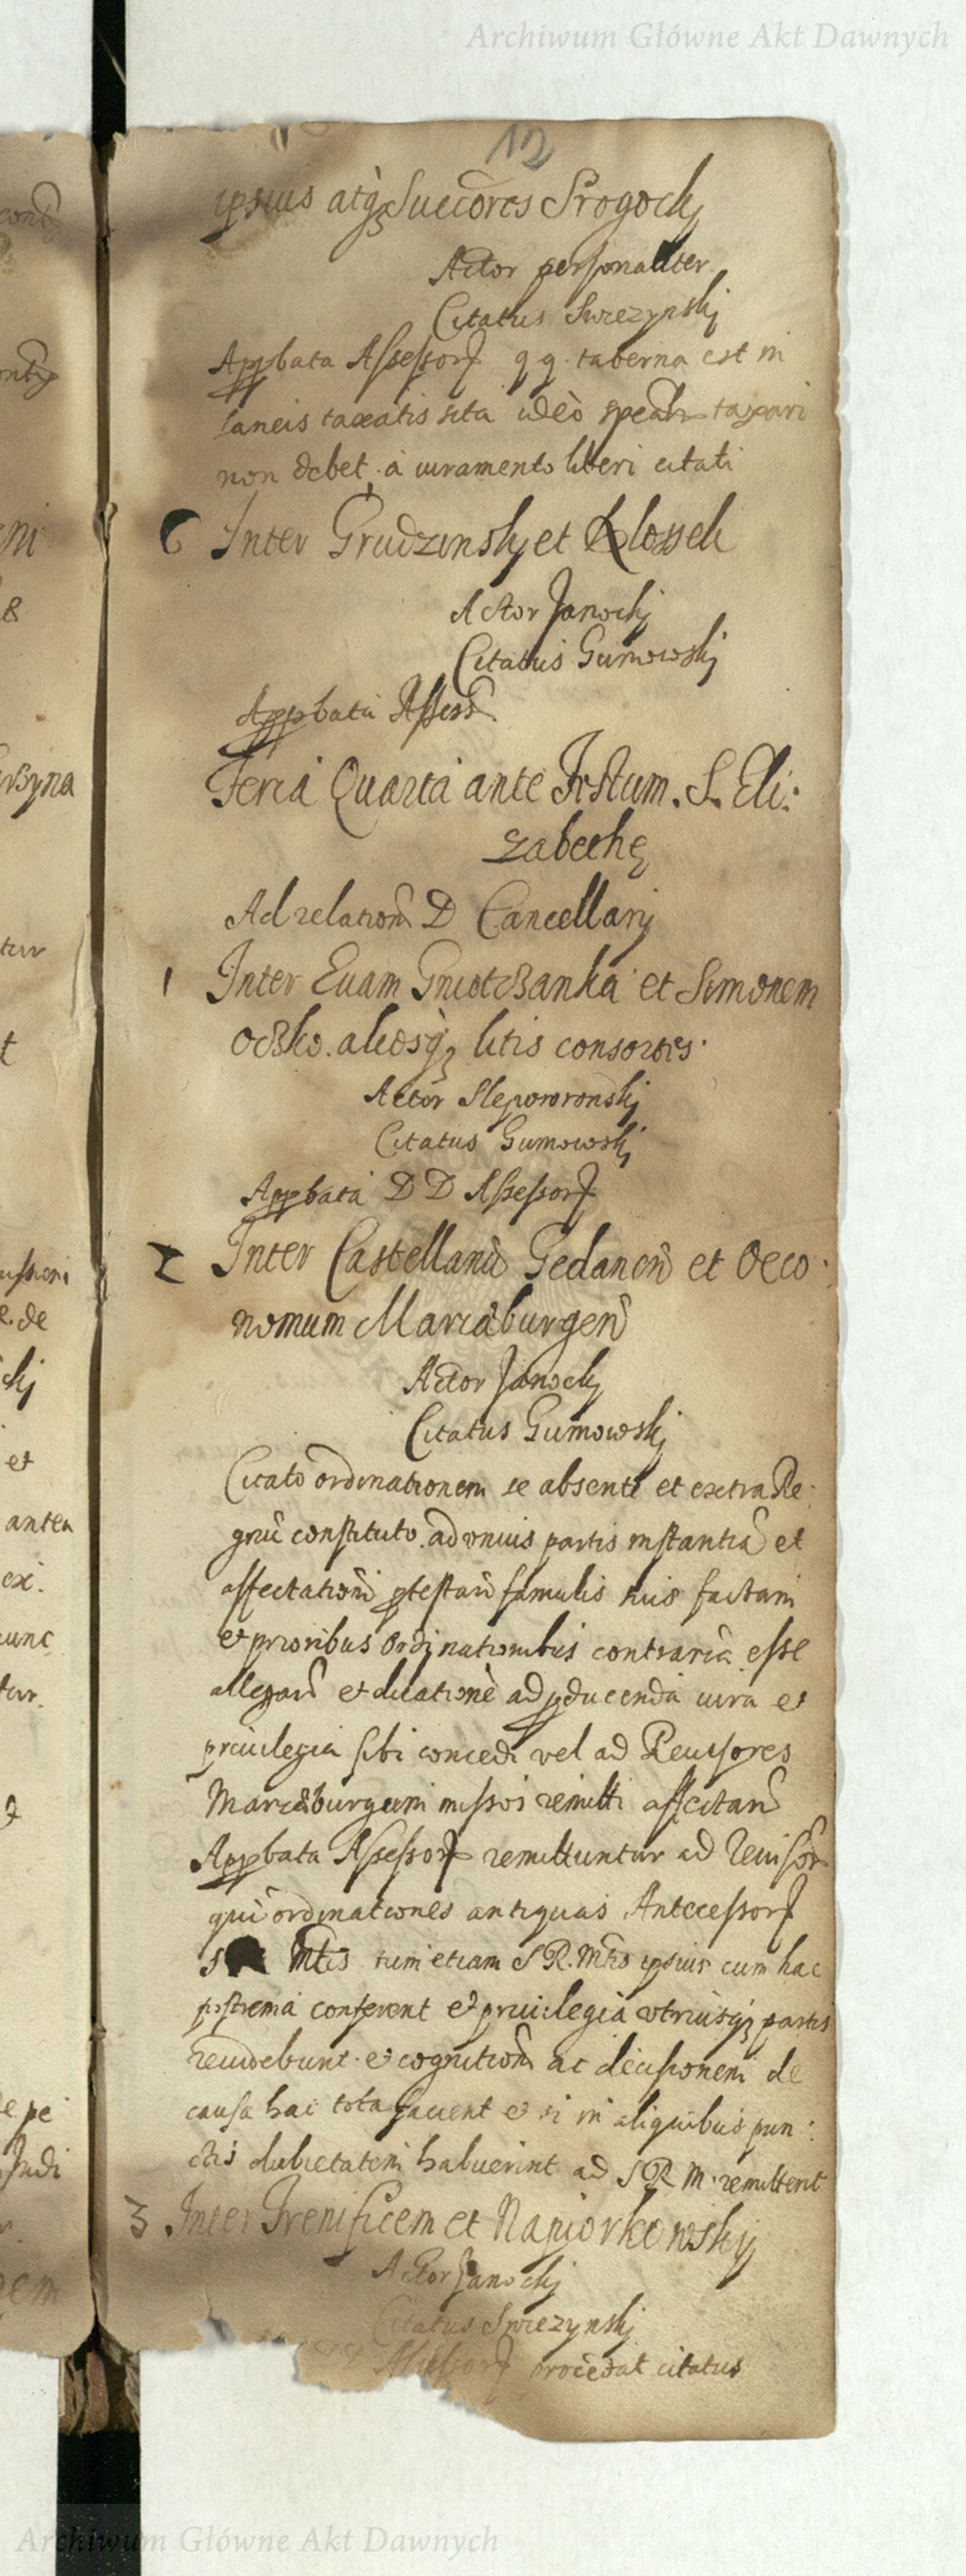 Archiwum Główne Akt Dawnych
12
ipsius atq; Succõres Srogocki
Actor personaliter
Citatus Swiezynskj
Appbata Assessorz q g. taberna est in
laneis taxatis sita ideò taxari
non debet, à iuramento liberi citati
6 Inter Grudzinskj et Klossek
Actor Janockj
Citatus Gumowskj
Appbata Assess
Feria Quarta ante Festum. S. Eli:
zabethę
Ad relationẽ D Cancellarij
1 Inter Euam Gniotczanka et Simonem
oczko. aliosq; litis consortes.
Actor Slepowronskj
Citatus Gumowskj
Appbata D D Assessorz
2 Inter Castellanũ Gedanen̄ et Oeco:
nomum Mariæburgen̄
Actor Janockj
Citatus Gumowskj
Citato ordinationem se absente et extra Re:
gnũ constituto. ad vnius partis instantiã et
affectationẽ ptestan̄ famulis suis factam
et prioribus ordinationibus contrariã esse
allegan̄ et dilationẽ ad pducenda iura et
priuilegia sibi concedi vel ad Reuisores
Mariæburgum missos remitti affectan̄
Appbata Assessorz remittuntur ad Reuisor
qui ordinationes antiquas Antecessorz
Mtis tum etiam S R. Mtis ipsius cum hac
postrema conferent et priuilegia vtriusq; partis
reuidebunt. et cognitionẽ ac decisionem de
causa hac tota facient et si in aliquibus pun:
ctis dubietatem habuerint ad S R M. remittent
3 Inter Frenificem et Napiorkowskij
Actor Janockj
Citatus Swiezynskj
Assessorz procedat citatus
Archiwum Główne Akt Dawnych